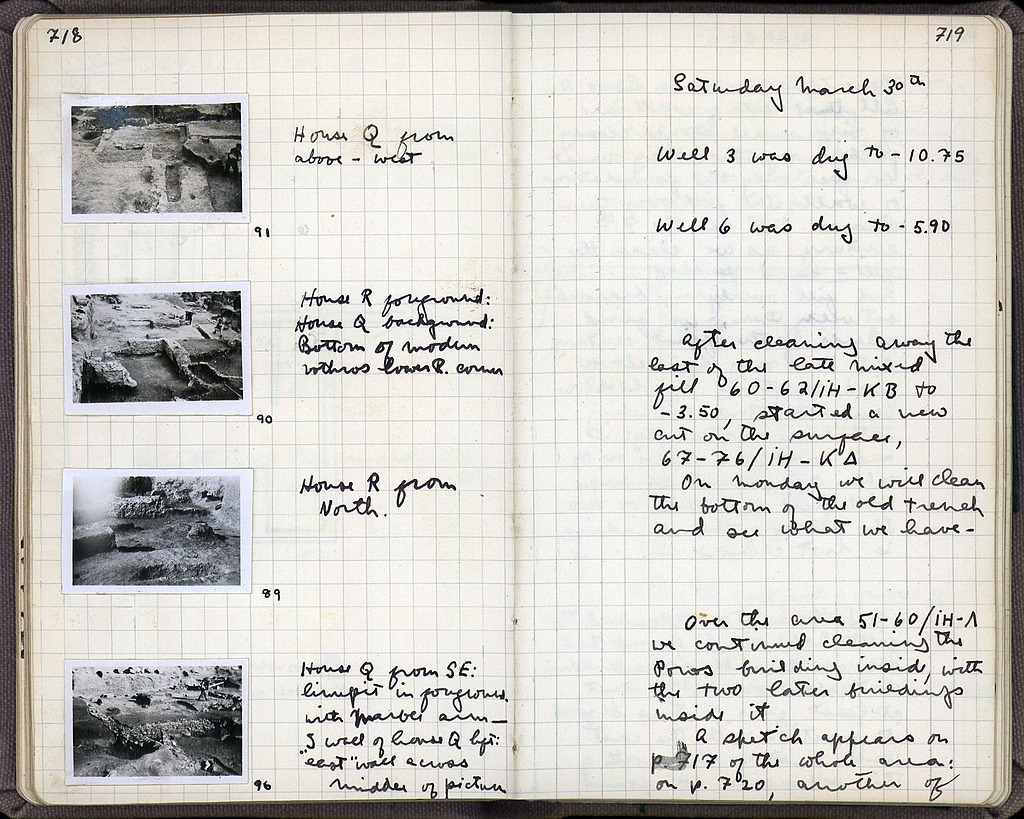 718
House Q from
above - west
91
House R foreground:
House Q background:
Bottom of modern
bothros lower R. corner
90
House R from
North.
89
House Q from SE:
limepit in foreground.
with marble arm—
"S wall of house Q left:
east" wall across
middle of picture
96
719
Saturday March 30th
Well 3 was dug to - 10.75
Well 6 was dug to - 5.90
After cleaning away the
last of the late mixed
fill 60-62/ΙΗ-ΚΒ to
-3.50, started a new
cut on the surface,
67-76/ΙΗ-ΚΔ
On Monday we will clean
the bottom of the old trench
and see what we have-
Over the area 51-60/ΙΗ-Λ
we continued cleaning the
Poros building inside, with
the two later buildings
inside it
A sketch appears on
p. 717 of the whole area:
on p. 720, another of